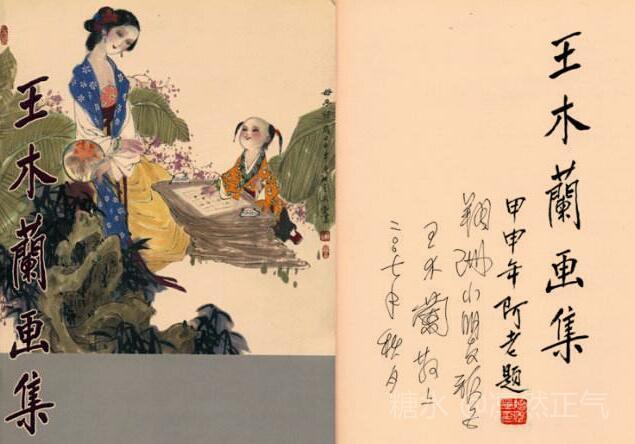 王木蘭画集
王木蘭画集
甲申年阿老題
小朋友
王木蘭敬上
二〇〇七年秋月
糖水 @浩然正气